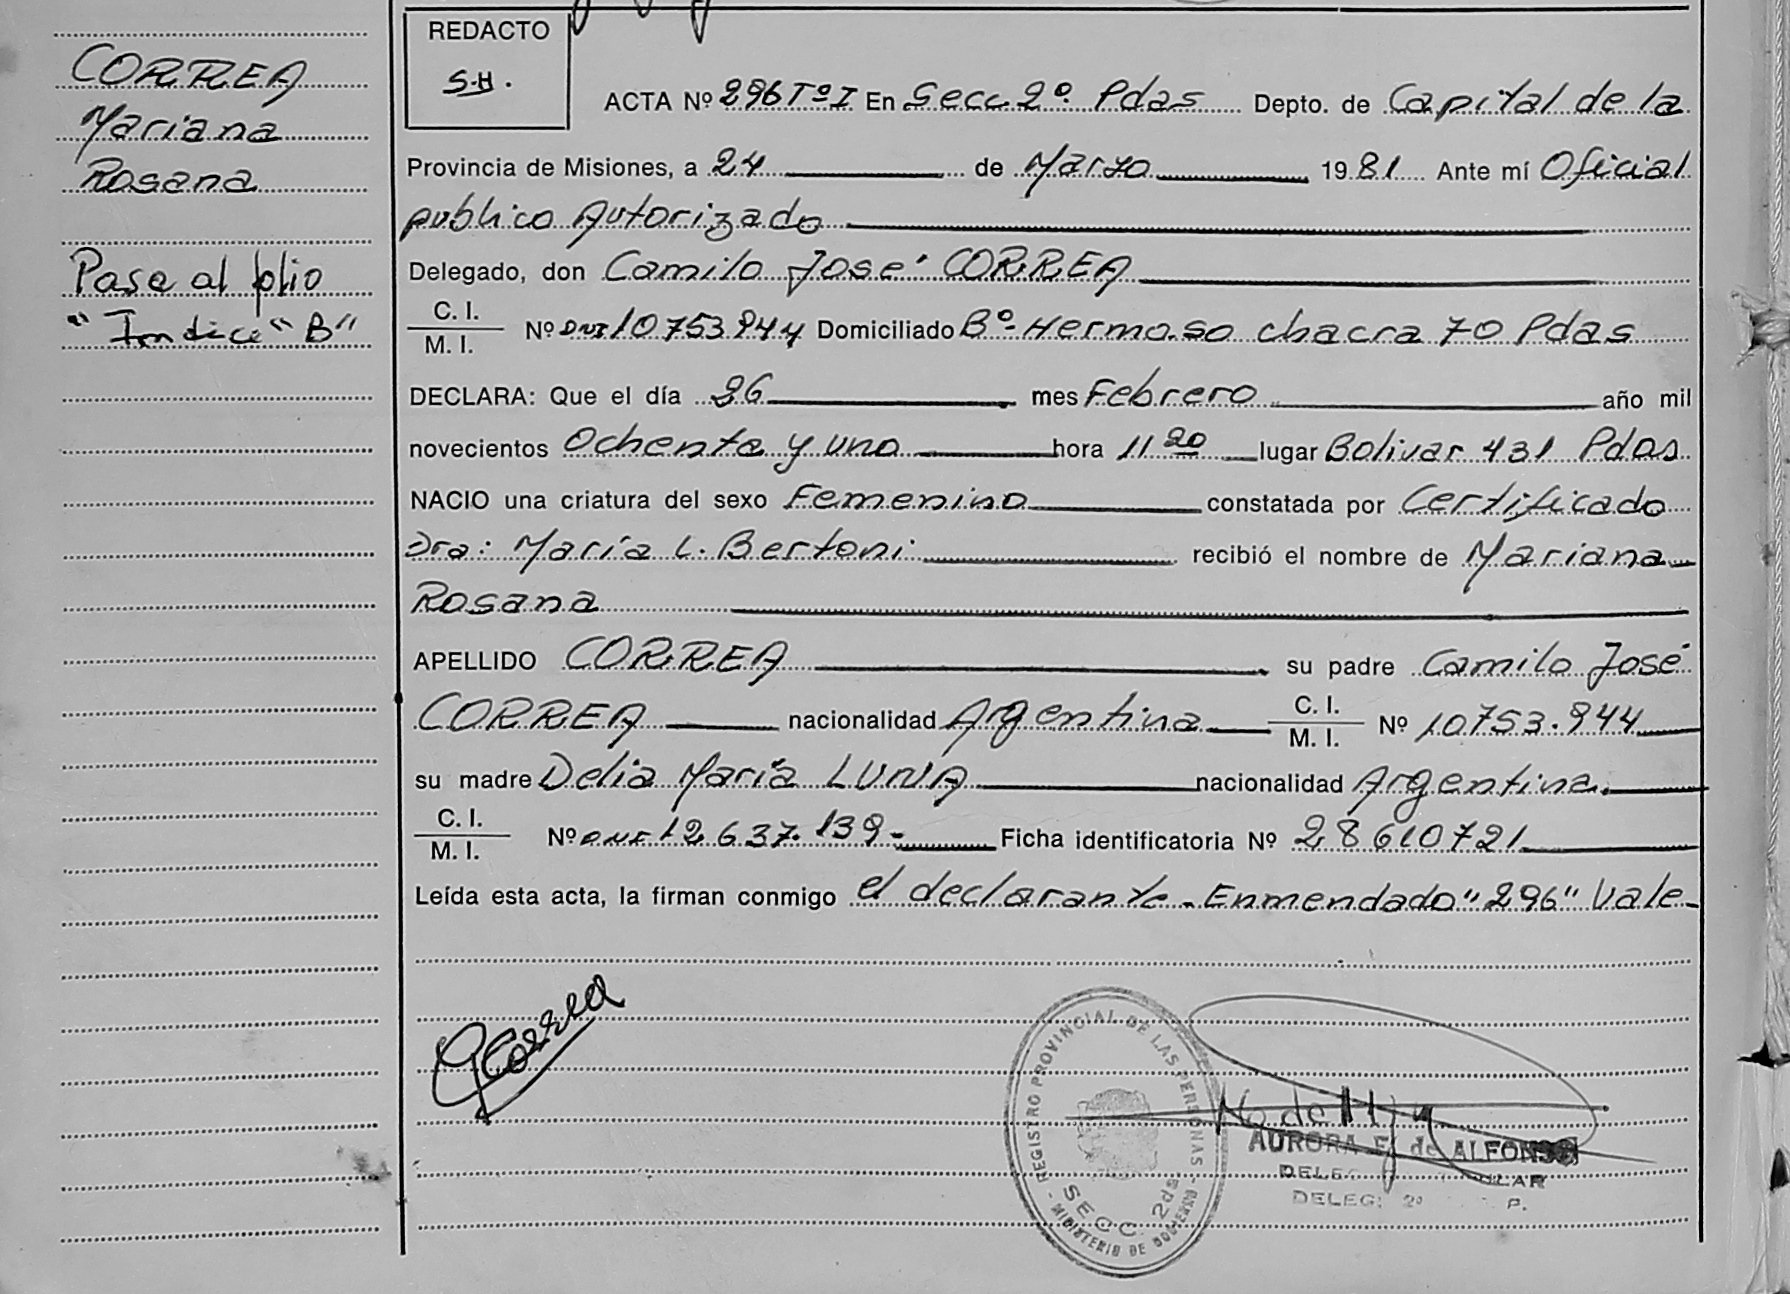 CORREA
Mariana
Rosana
Pase al folio
"Indice "B"
REDACTO
S.H.
ACTA Nº 296 Tº I En Secc 2º Pdas Depto. de Capital de la
Provincia de Misiones, a 24 de Marzo 1981 Ante mí Oficial
publico Autorizado
Delegado, don Camilo José CORREA
C. I.
M. I.
Nº DNI 10753944 Domiciliado Bº Hermoso chacra 70 Pdas
DECLARA: Que el día 26 mes Febrero año mil
novecientos Ochenta y uno hora 11 20 lugar Bolivar 431 Pdas
NACIO una criatura del sexo Femenino constatada por Certificado
Dra: María L. Bertoni recibió el nombre de Mariana
Rosana
APELLIDO CORREA su padre Camilo José
CORREA nacionalidad Argentina C. I. M. I. Nº 10753.944
su madre Delia María LUNA nacionalidad Argentina
C. I.
M. I.
Nº DNI 12.637.139- Ficha identificatoria Nº 28610721
Leída esta acta, la firman conmigo el declarante - Enmendado "296" Vale-
Correa
REGISTRO PROVINCIAL DE LAS PERSONAS
SECC. 2da
MINISTERIO DE GOBIERNO
AURORA de ALFONSO
DELEG. 2º P.